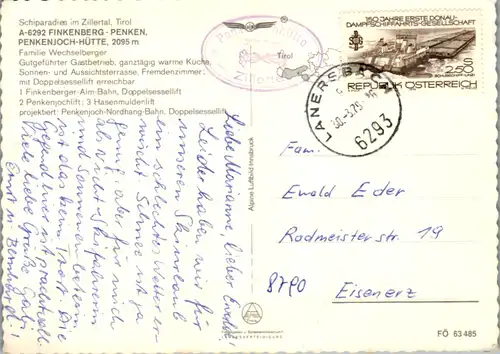 Schiparadies im Zillertal, Tirol
A-6292 FINKENBERG - PENKEN,
PENKENJOCH-HÜTTE, 2095 m
Familie Wechselberger
Gutgeführter Gastbetrieb, ganztägig warme Küche,
Sonnen- und Aussichtsterrasse, Fremdenzimmer,
mit Doppelsessellift erreichbar
1 Finkenberger-Alm-Bahn, Doppelsessellift
2 Penkenjochlift; 3 Hasenmuldenlift
projektiert: Penkenjoch-Nordhang-Bahn, Doppelsessellift
Tirol
150 JAHRE ERSTE DONAU-
DAMPFSCHIFFAHRTS-GESELLSCHAFT
S 2.50
REPUBLIK ÖSTERREICH
LANERSBACH
6293
Liebe Marianne, lieber Ewald!
Leider haben wir für
unseren Skiurlaub
ein schlechtes Wetter er-
wischt. Schnee ist ja
genug, aber für mich
als nicht-Skifahrerin
und Sonnenanbeterin
ist das kein Trost. Die
Gegend hier ist prachtvoll.
Viele liebe Grüße Gabi
Ernst u. Bernhard!
Alpine Luftbild Innsbruck
Fam.
Ewald Eder
Radmeisterstr. 19
8790
Eisenerz
FÖ 63 485